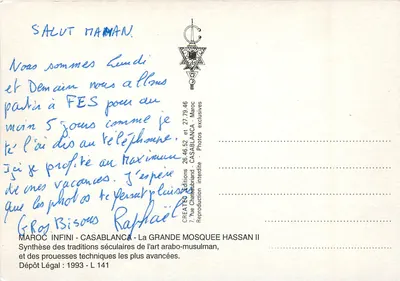 SALUT MAMAN.
Nous sommes Lundi
et Demain nous allons
partir à FES pour au
moin 5 jours comme je
te l'ai dis au téléphone.
Ici je profite au Maximum
de mes vacances. J'espère
que les photos te feront plaisir
GROS BISOUS Raphaël
CREATEC Editions 26.46.52 et 27.79.46
7, Rue Chateaubriand - CASABLANCA - Maroc
Reproduction interdite - Photos exclusives
MAROC INFINI - CASABLANCA - La GRANDE MOSQUEE HASSAN II
Synthèse des traditions séculaires de l'art arabo-musulman,
et des prouesses techniques les plus avancées.
Dépôt Légal : 1993 - L 141